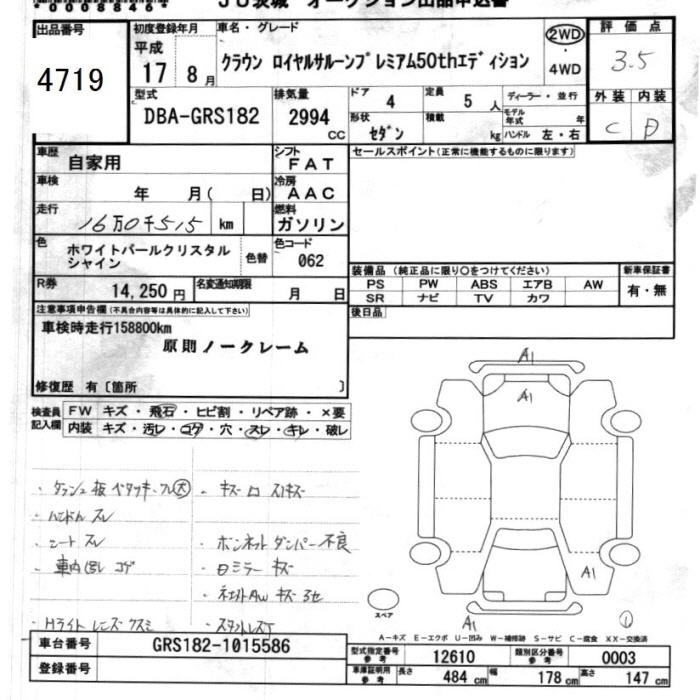 000846 JU茨城 オークション出品申込書
出品番号
4719
初度登録年月
平成
17 8月
車名・グレード
クラウン ロイヤルサルーンプレミアム50thエディション
2WD
・
4WD
評価点
3.5
型式
DBA-GRS182
排気量
2994
CC
ドア 4
定員 5 人
ディーラー・並行
モデル年式 年
形状 セダン
積載 kg
ハンドル 左・右
外装 内装
C D
車歴
自家用
シフト
FAT
セールスポイント(正常に機能するものに限ります)
車検
年 月( 日)
冷房
AAC
走行
16万0千515 km
燃料
ガソリン
色
ホワイトパールクリスタル
シャイン
色替
色コード
062
R券
14,250円
名変通知期限
月 日
装備品(純正品に限り○をつけてください)
PS PW ABS エアB AW
SR ナビ TV カワ
新車保証書
有・無
後日品
注意事項申告欄(不具合内容等は具体的に記入して下さい)
車検時走行158800km
原則ノークレーム
修復歴 有〔箇所 〕
検査員
記入欄
FW キズ・飛石・ヒビ割・リペア跡・×要
内装 キズ・汚レ・コゲ・穴・スレ・キレ・破レ
A1
A1
A1
A1
・ダッシュ板ベタツキ・
・ハンドルスレ
・シートスレ
・車内 コゲ
・Hライトレンズクスミ
・ボンネットダンパー不良
・ミラーキズ
スペア
1
A-キズ E-エクボ U-凹み W-補修跡 S-サビ C-腐食 XX-交換済
車台番号
GRS182-1015586
登録番号
型式指定番号
参考
12610
類別区分番号
参考
0003
車庫証明用
参考
長さ 484 cm
幅 178 cm
高さ 147 cm